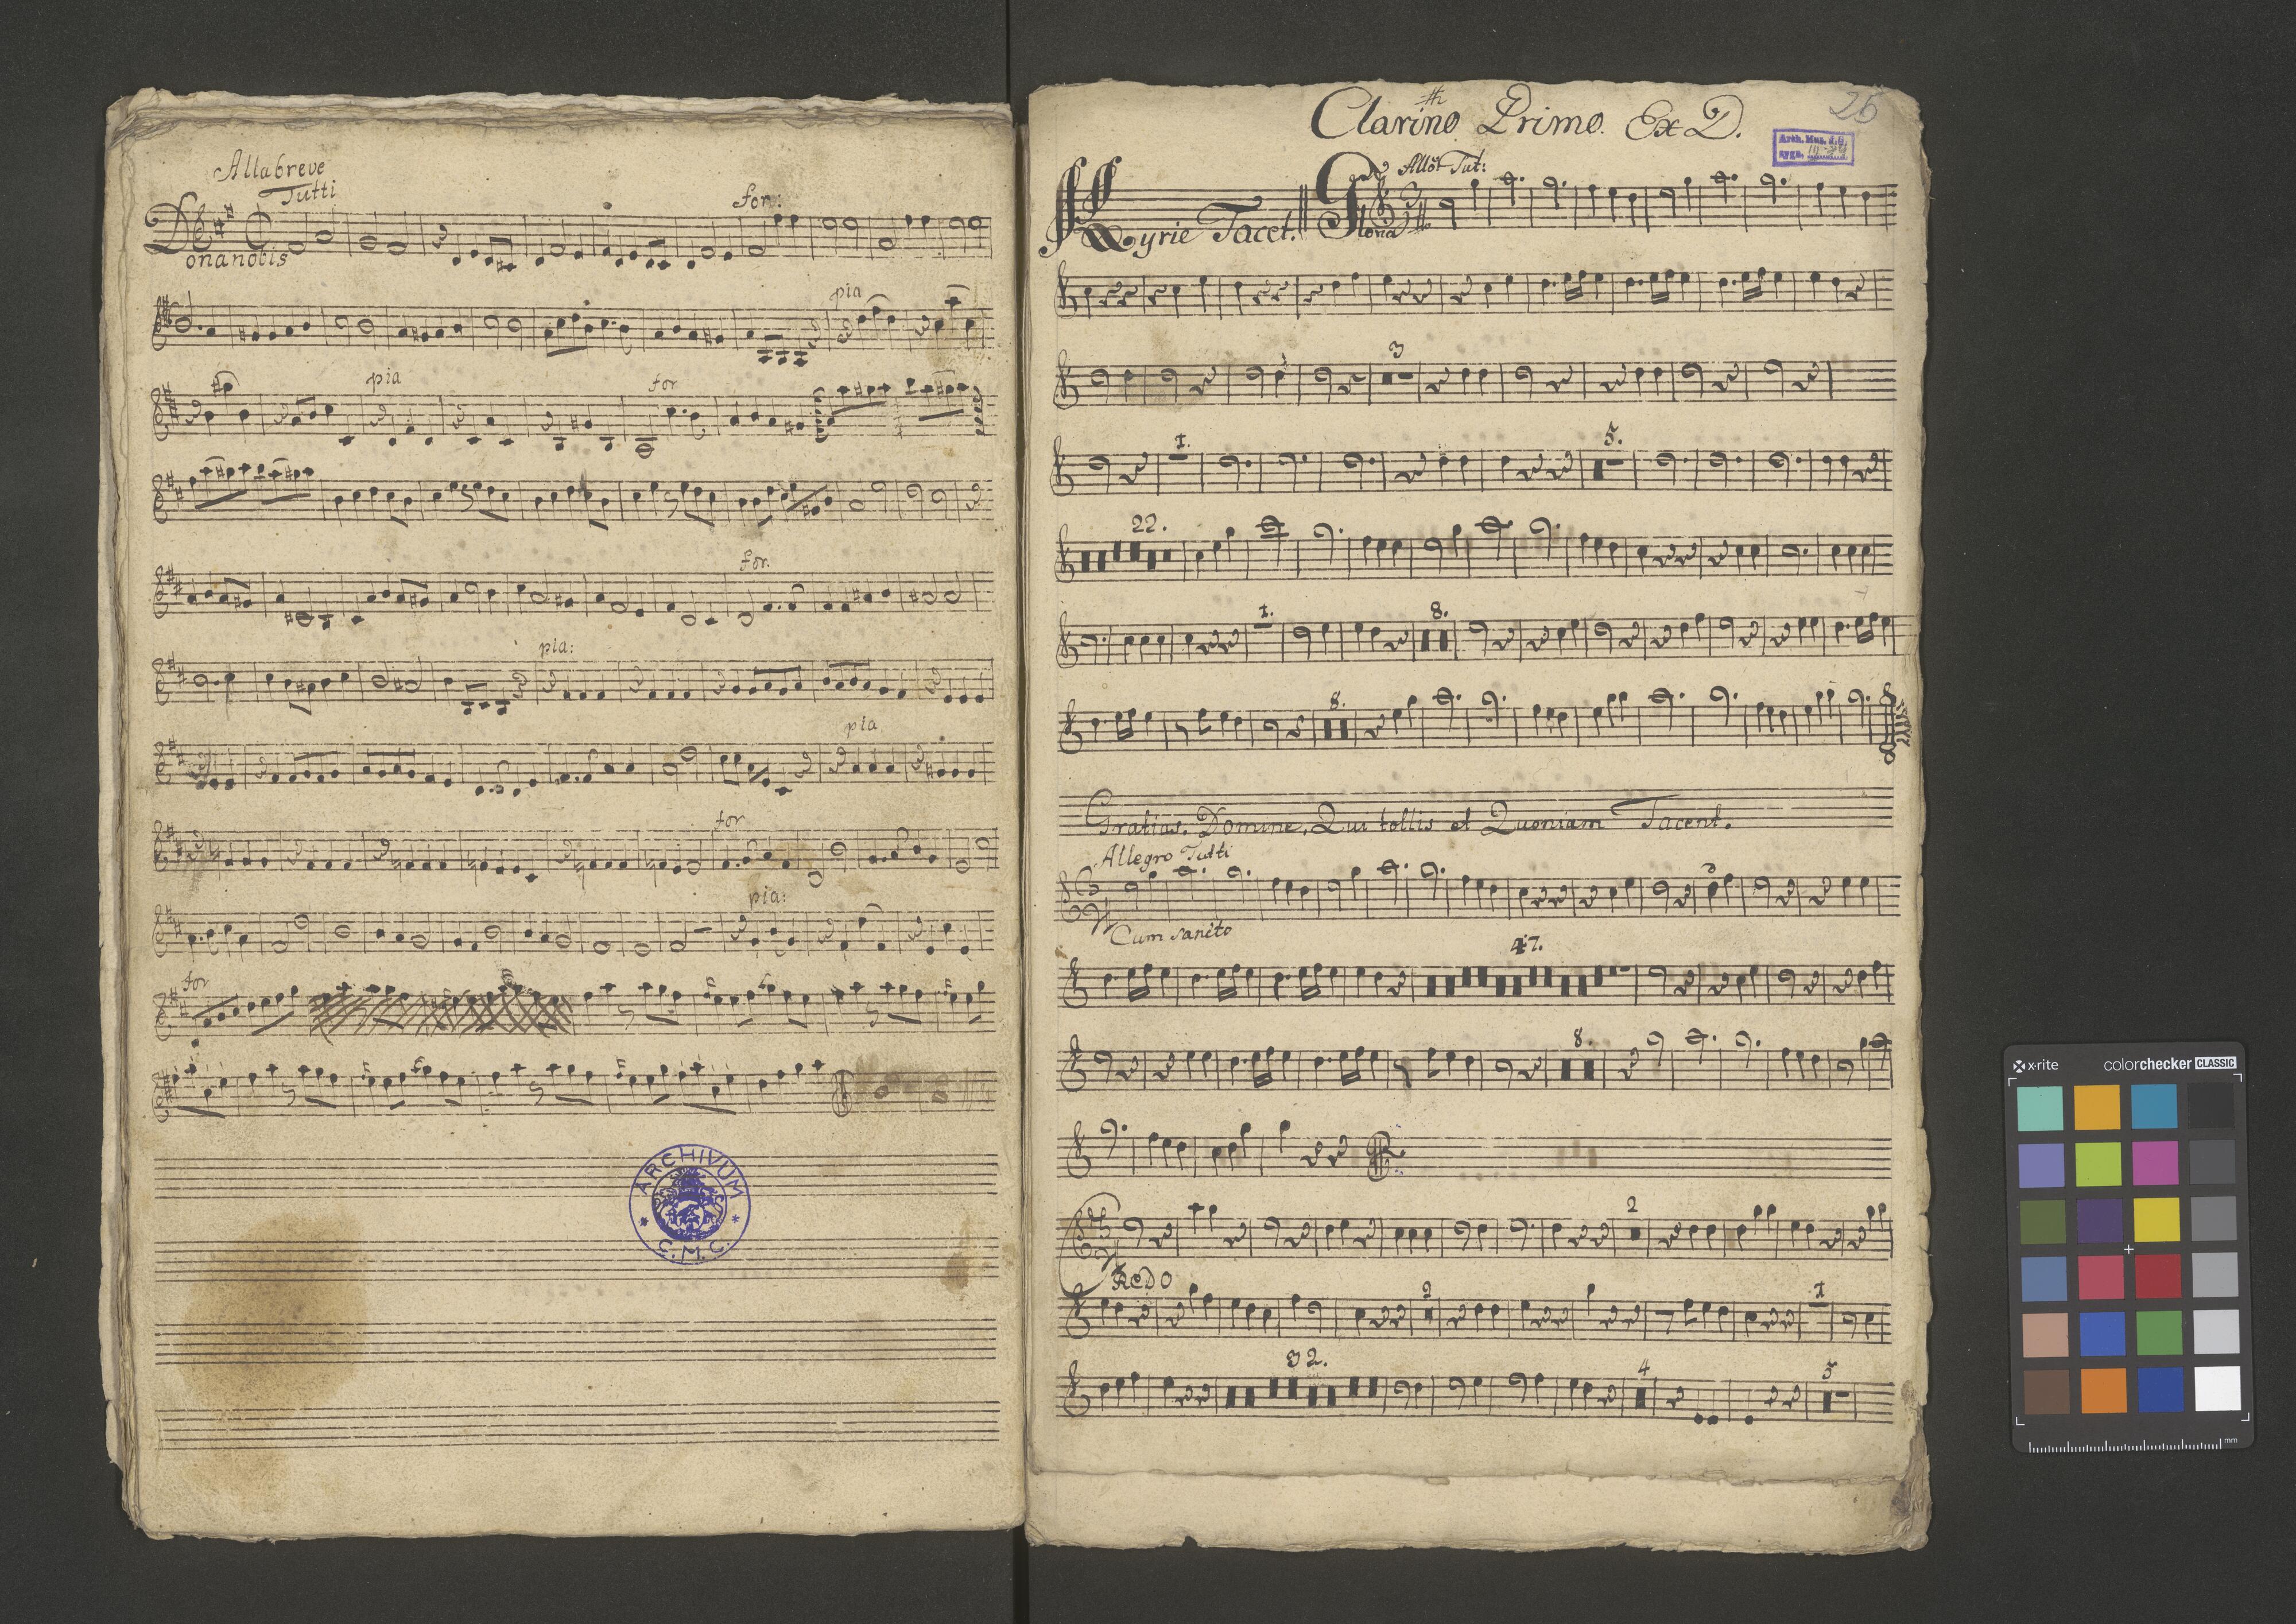 Allabreve
Tutti
for:
Dona nobis
pia
pia
for
for.
pia:
pia
for
pia:
for
ARCHIVUM
C. M. C.
26
Clarino Primo. Ex D.
Kyrie Tacet.
Gloria
Tut:
3
1.
5.
22.
1.
8.
8.
Gratias. Domine. Qui tollis et Quoniam Tacent.
Allegro Tutti
Cum sancto
47.
8.
2
CREDO
2
1
32.
4
5
x·rite
colorchecker CLASSIC
mm